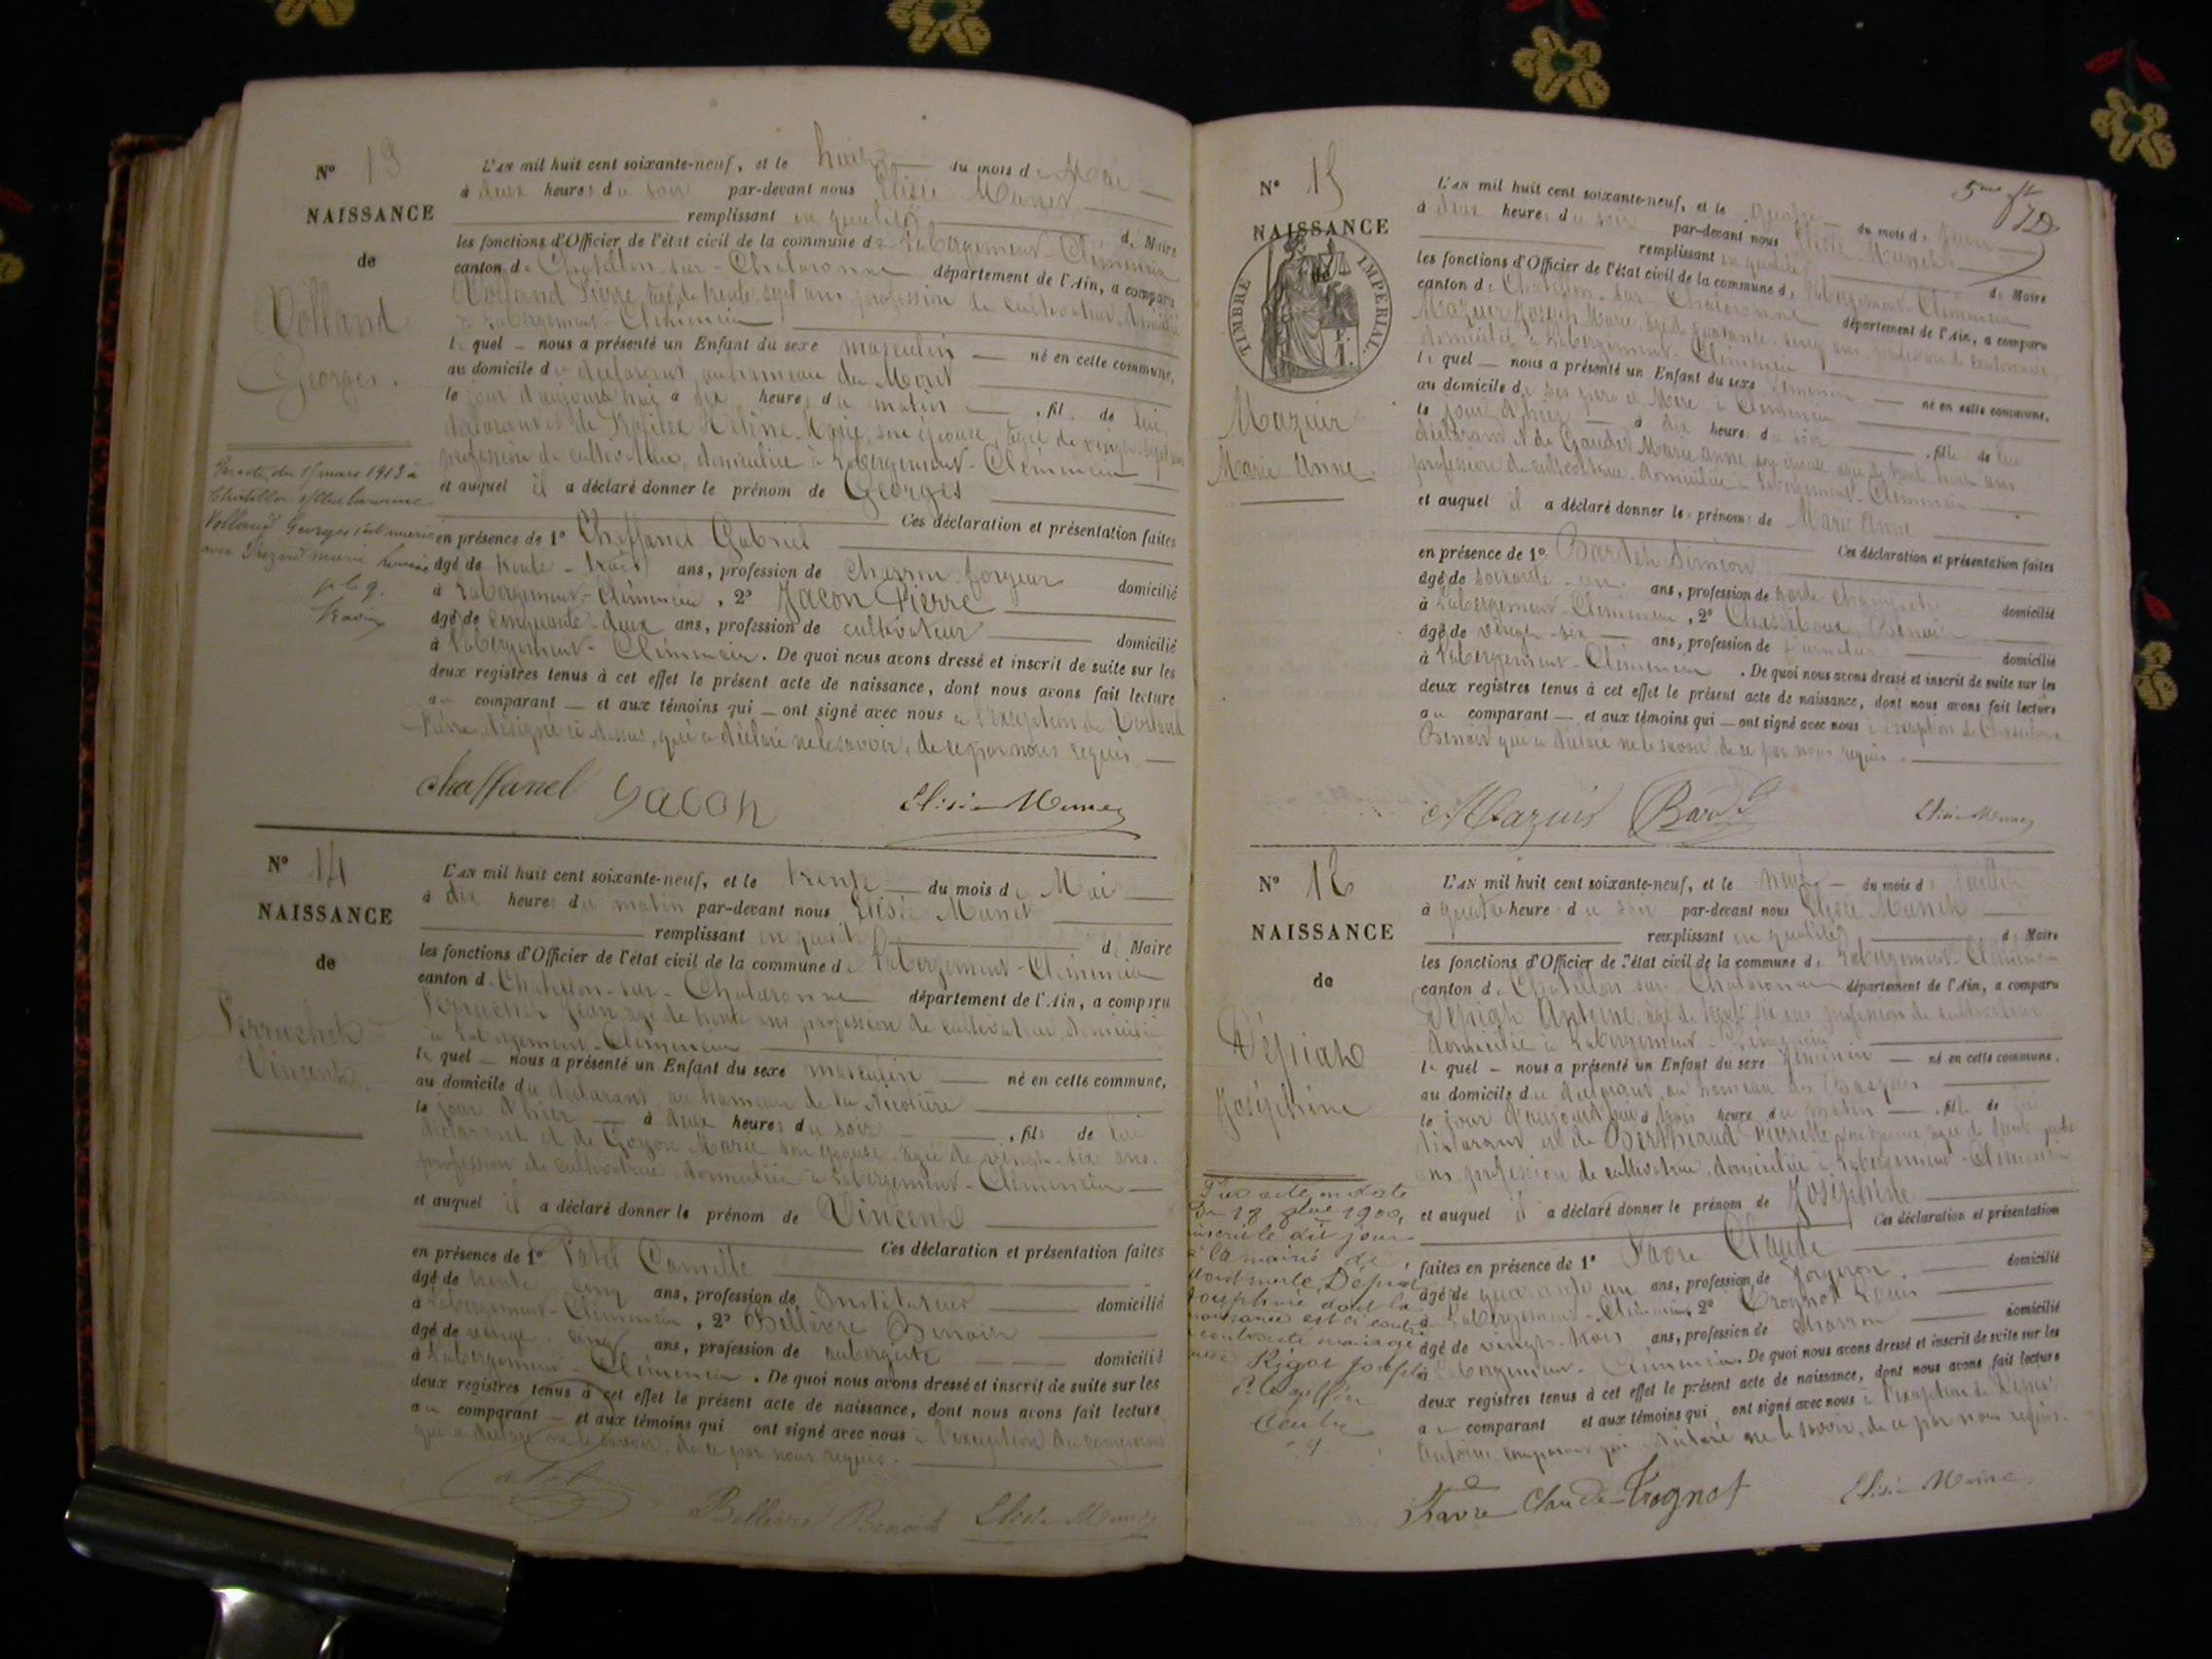 N° 13
NAISSANCE
de
Volland
Georges.
Par acte du 1 mars 1913 à
Chatillon s/Chalaronne
Volland Georges s'est marié
avec marie Louise
L'AN mil huit cent soixante-neuf, et le huit du mois de Mai
à deux heures du soir par-devant nous Elisée Munet
remplissant en qualité de Maire
les fonctions d'Officier de l'état civil de la commune de Labergement-Clémencia
canton de Chatillon-sur-Chalaronne département de l'Ain, a comparu
Volland Pierre, âgé de trente sept ans profession de cultivateur, domicilié
à Labergement-Clémencia
lequel nous a présenté un Enfant du sexe masculin né en cette commune,
au domicile du déclarant, au hameau du Mont
le jour d'aujourd'hui à six heures du matin, fils de lui
déclarant et de Hélène Marie, son épouse, âgée de vingt-sept ans
profession de cultivatrice, domiciliée à Labergement-Clémencia
et auquel il a déclaré donner le prénom de Georges
Ces déclaration et présentation faites
en présence de 1° Chaffanel Gabriel
âgé de trente-trois ans, profession de forgeur domicilié
à Labergement-Clémencia, 2° Jacon Pierre
âgé de cinquante-deux ans, profession de cultivateur domicilié
à Labergement-Clémencia. De quoi nous avons dressé et inscrit de suite sur les
deux registres tenus à cet effet le présent acte de naissance, dont nous avons fait lecture
au comparant et aux témoins qui ont signé avec nous à l'exception de Volland
Pierre, désigné ci-dessus, qui a déclaré ne le savoir, de ce par nous requis
Chaffanel Jacon Elisée Munet
N° 14
NAISSANCE
de
Perruchet
Vincent.
L'AN mil huit cent soixante-neuf, et le trente du mois de Mai
à dix heures du matin par-devant nous Elisée Munet
remplissant en qualité de Maire
les fonctions d'Officier de l'état civil de la commune de Labergement-Clémencia
canton de Chatillon-sur-Chalaronne département de l'Ain, a comparu
Perruchet Jean âgé de trente ans profession de cultivateur, domicilié
à Labergement-Clémencia
lequel nous a présenté un Enfant du sexe masculin né en cette commune,
au domicile du déclarant au hameau de la
le jour d'hier à deux heures du soir, fils de lui
déclarant et de Goyon Marie son épouse âgée de vingt-six ans.
profession de cultivatrice domiciliée à Labergement-Clémencia
et auquel il a déclaré donner le prénom de Vincent
Ces déclaration et présentation faites
en présence de 1° Catel Camille
âgé de trente cinq ans, profession de Instituteur domicilié
à Labergement-Clémencia, 2° Bellèvre Benoit
âgé de vingt-cinq ans, profession de aubergiste domicilié
à Labergement-Clémencia. De quoi nous avons dressé et inscrit de suite sur les
deux registres tenus à cet effet le présent acte de naissance, dont nous avons fait lecture
au comparant et aux témoins qui ont signé avec nous à l'exception du comparant
qui a déclaré ne le savoir, de ce par nous requis.
Catel
Bellèvre Benoit Elisée Munet
N° 15
NAISSANCE
de
TIMBRE IMPERIAL
Mazuir
Marie Anne
L'AN mil huit cent soixante-neuf, et le quatre du mois de Juin
à deux heures du soir par-devant nous Elisée Munet
remplissant en qualité de Maire
les fonctions d'Officier de l'état civil de la commune de Labergement-Clémencia
canton de Chatillon-sur-Chalaronne département de l'Ain, a comparu
Mazuir Joseph Marie, âgé de quarante-cinq ans, profession de cantonnier
domicilié à Labergement-Clémencia
lequel nous a présenté un Enfant du sexe féminin né en cette commune,
au domicile de ses père et Mère à Clémencia
le jour d'hier à dix heures du soir, fille de lui
déclarant et de Gaudet Marie Anne son épouse âgée de trente huit ans
profession de cultivatrice, domiciliée à Labergement-Clémencia
et auquel il a déclaré donner les prénoms de Marie Anne
Ces déclaration et présentation faites
en présence de 1° Bardet Siméon
âgé de soixante-un ans, profession de garde champêtre domicilié
à Labergement-Clémencia, 2° Benoit
âgé de vingt-six ans, profession de domicilié
à Labergement-Clémencia. De quoi nous avons dressé et inscrit de suite sur les
deux registres tenus à cet effet le présent acte de naissance, dont nous avons fait lecture
au comparant et aux témoins qui ont signé avec nous à l'exception de
Benoit qui a déclaré ne le savoir de ce par nous requis.
Mazuir Bardet Elisée Munet
N° 16
NAISSANCE
de
Dépiat
Joséphine
Par acte en date
du 1900,
inscrit le dit jour
à la mairie de
Dépiat
Joséphine dont la
naissance est ci contre
a contracté mariage
avec Rigot Joseph
L'AN mil huit cent soixante-neuf, et le neuf du mois de Juillet
à quatre heures du soir par-devant nous Elisée Munet
remplissant en qualité de Maire
les fonctions d'Officier de l'état civil de la commune de Labergement-Clémencia
canton de Chatillon-sur-Chalaronne département de l'Ain, a comparu
Antoine, âgé de trente six ans profession de cultivateur
domicilié à Labergement-Clémencia
lequel nous a présenté un Enfant du sexe féminin né en cette commune,
au domicile du déclarant, au hameau des
le jour d'aujourd'hui à trois heures du matin, fille de lui
déclarant et de Berthiaud Pierrette, son épouse, âgée de trente-quatre
ans profession de cultivatrice, domiciliée à Labergement-Clémencia
et auquel il a déclaré donner le prénom de Joséphine
Ces déclaration et présentation
faites en présence de 1° Favre Claude
âgé de quarante un ans, profession de forgeron. domicilié
à Labergement-Clémencia, 2° Trognot Louis
âgé de vingt-trois ans, profession de charron domicilié
à Labergement-Clémencia. De quoi nous avons dressé et inscrit de suite sur les
deux registres tenus à cet effet le présent acte de naissance, dont nous avons fait lecture
au comparant et aux témoins qui ont signé avec nous à l'exception de
Antoine, comparant qui a déclaré ne le savoir, de ce par nous requis.
Favre Claude Trognot Elisée Munet